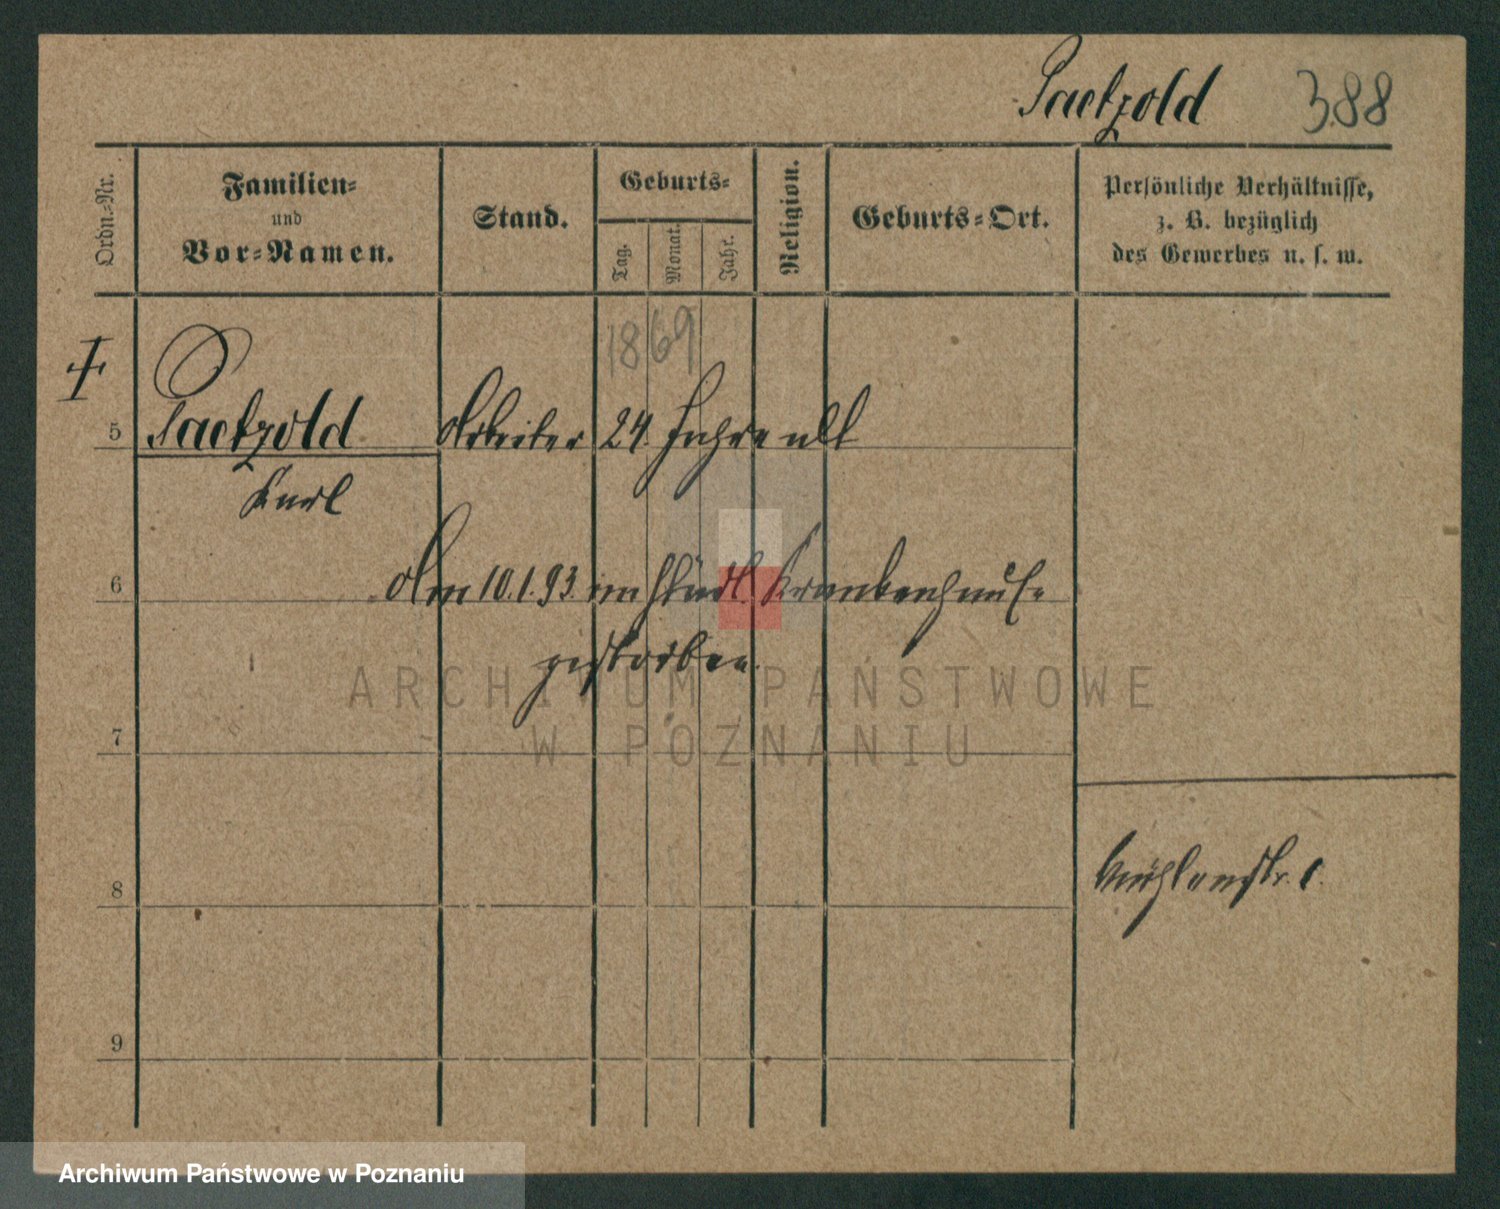 Paetzold 388
Ordn.-Nr.
Familien-
und
Vor-Namen.
Stand.
Geburts-
Tag.
Monat.
Jahr.
Religion.
Geburts-Ort.
Persönliche Verhältnisse,
z. B. bezüglich
des Gewerbes u. s. w.
1869
5 Paetzold Arbeiter 24 Jahre alt
Karl
6 Am 10.1.93. im städtl. Krankenhause
gestorben.
ARCHIWUM PAŃSTWOWE
W POZNANIU
7
Mühlenstr.
8
9
Archiwum Państwowe w Poznaniu